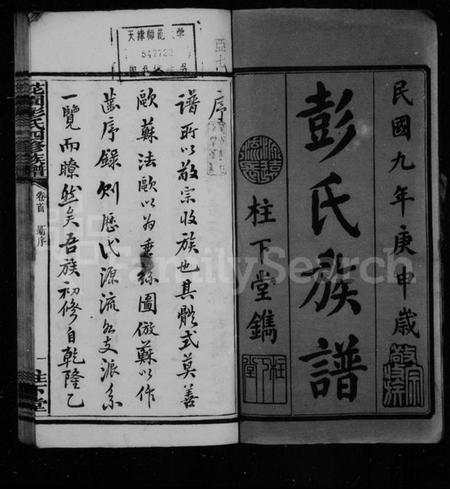 民國九年庚申歲
彭氏族譜
柱下堂鐫
敬宗收族
序
譜所以敬宗收族也其體式莫善
歐蘇法歐以為垂絲圖倣蘇以作
齒序錄則歷代源流分支派系
一覽而瞭然矣吾族初修自乾隆乙
彭氏四修族譜
卷首
序
一
柱下堂
天津師範大學
547722
FamilySearch